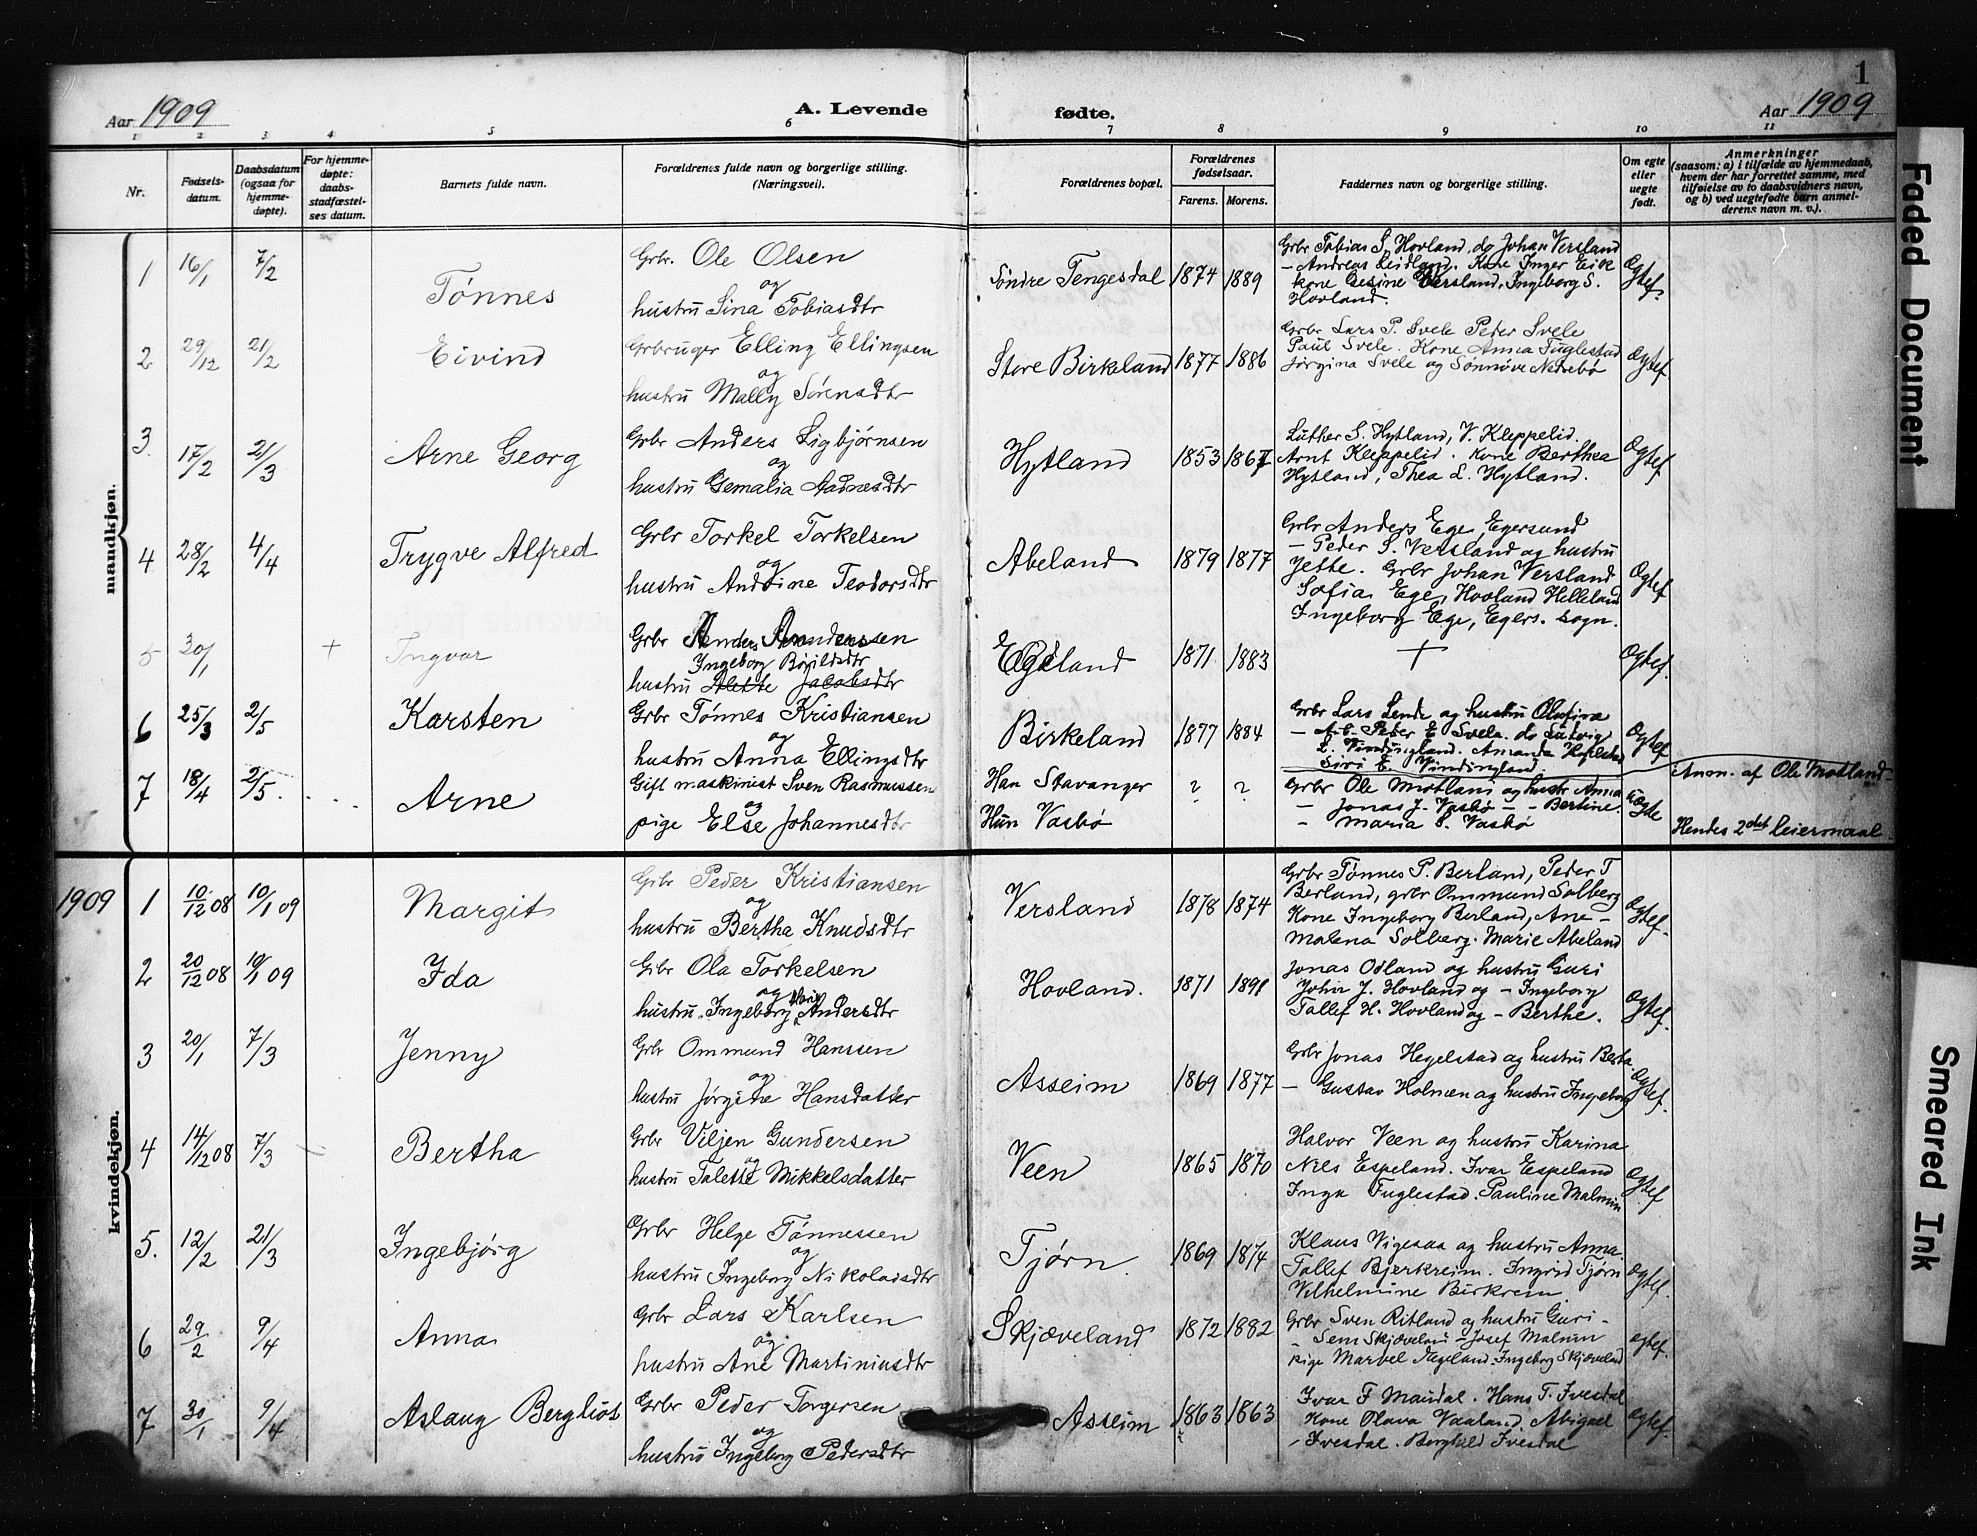 1
Aar 1909
A. Levende
fødte.
Aar 1909
1 2 3 4 5 6 7 8 9 10 11
Nr.
Fødsels-
datum.
Daabsdatum
(ogsaa for
hjemme-
døpte).
For hjemme-
døpte:
daabs-
stadfæstel-
ses datum.
Barnets fulde navn.
Forældrenes fulde navn og borgerlige stilling.
(Næringsvei).
Forældrenes bopæl.
Forældrenes
fødselsaar.
Farens. Morens.
Faddernes navn og borgerlige stilling.
Om egte
eller
uegte
født.
Anmerkninger
(saasom: a) i tilfælde av hjemmedaab,
hvem der har forrettet samme, med
tilføielse av to daabsvidners navn,
og b) ved uegtefødte barn anmel-
derens navn m. v.).
mandkjøn.
1 16/1 7/2 Tønnes
Grbr. Ole Olsen
og
hustru Sina Tobiasdtr
Søndre Tengesdal 1874 1889
Grbr Tobias S. Hovland, do Johan Versland
— Andreas Leidland. Kone Inger Eik
kone Gesine Versland, Ingeborg S.
Hovland.
Ægtef.
2 29/12 21/2 Eivind
Grbruger Elling Ellingsen
og
hustru Mally Sørensdtr
Store Birkeland 1877 1886
Grbr Lars P. Svele Peder Svele
Paul Svele. Kone Anna Fuglestad
Jørgina Svele og Sønnøve Nedrebø
Ægtef.
3. 17/2 21/3 Arne Georg
Grbr Anders Sigbjørnsen
og
hustru Gemalia Aadnesdtr
Hytland 1853 1867
Luther S. Hytland, V. Kleppelid.
Arnt Kleppelid. Kone Berthea
Hytland, Thea L. Hytland.
Ægtef.
4 28/2 4/4 Trygve Alfred
Grbr Torkel Torkelsen
og
hustru Andrine Teodorsdtr
Abeland 1879 1877
Grbr Anders Ege, Egersund
— Peder S. Versland og hustru
Jette. Grbr Johan Versland
Sofia Ege, Hovland Helleland
Ingeborg Ege, Egers. sogn.
Ægtef.
5 30/1 + Ingvar
Grbr Anders Anderssen
Ingeborg Bøildsdtr
hustru Alette Jacobsdtr
Egeland 1871 1883
+
Ægtef.
6 25/3 2/5 Karsten
Grbr Tønnes Kristiansen
og
hustru Anna Ellingsdtr
Birkeland 1877 1884
Grbr Lars Lende og hustru Olufina
— Peder E Svela. do Ludvig
L. Vindingland. Amanda
Siri E. Vindingland
Ægtef.
7 18/4 2/5. Arne
Gift maskinist Sven Rasmussen
og
pige Else Johannesdtr
Han Stavanger ? ?
Hun Vasbø
Grbr Ole Motland og hustr Anna
— Jonas J. Vasbø — — Bertine.
— Maria S. Vasbø
Uægte
Anm. af Ole Motland
Hendes 2det leiermaal.
1909
kvindekjøn.
1 10/12 08 10/1 09 Margit
Grbr Peder Kristiansen
og
hustru Bertha Knudsdtr
Versland 1878 1874
Grbr Tønnes P. Berland, Peder T
Berland, grbr Ommund Solberg
Kone Ingeborg Berland, Ane —
Malena Solberg. Marie Abeland
Ægtef.
2 20/12 08 10/1 09 Ida
Grbr Ola Torkelsen
og
hustru Ingeborg Marie Andersdtr
Hovland. 1871 1891
Jonas Odland og hustru Guri
John J. Hovland og — Ingeborg
Tallef H. Hovland og — Berthe.
Ægtef.
3 20/1 7/3 Jenny
Grbr Ommund Hanssen
og
hustru Jørgine Hansdatter
Asseim 1869 1877
Grbr Jonas Hegelstad og hustru Berta
— Gustav Holmen og hustru Ingeborg
Ægtef.
4 14/12 08 7/3 Bertha
Grbr Viljen Gundersen
og
hustru Talette Mikkelsdatter
Veen 1865 1870
Halvor Veen og hustru Karina
Nils Espeland. Ivar Espeland
Inga Fuglestad. Pauline Malmin
Ægtef
5. 12/2 21/3 Ingebjørg
Grbr Helge Tønnessen
og
hustru Ingeborg Nikolaisdtr
Tjørn 1869 1874
Klaus Vigesaa og hustru Anna.
Tallef Bjerkreim. Ingrid Tjørn
Vilhelmine Birkrem
Ægtef.
6 29/2 9/4 Anna
Grbr Lars Karlsen
og
hustru Ane Martiniusdtr
Skjæveland 1872 1882
Grbr Sven Ritland og hustru Guri —
— Sem Skjæveland — Josef Malmin
pige Marvel Ægeland. Ingeborg Skjæveland
egtef.
7 30/1 9/4 Aslaug Bergliot
Grbr Peder Torgersen
og
hustru Ingeborg Pedersdtr
Asseim 1863 1863
Ivar F Maudal. Hans T. Ivesdal
Kone Olava Vaaland Abigael
— Ivesdal. Borghild Ivesdal
egtef.
Faded Document
Smeared Ink